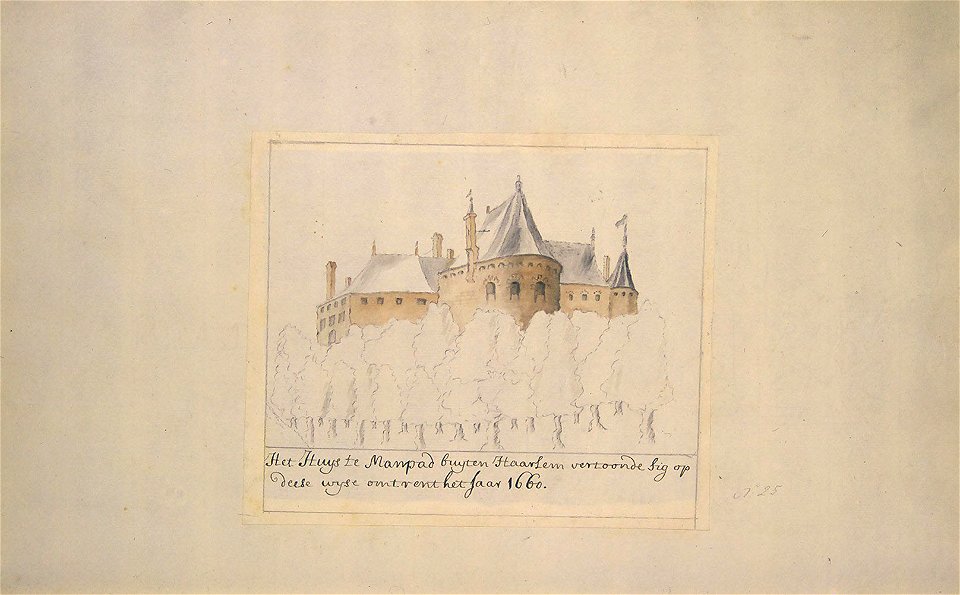 Het Huys te Manpad buyten Haarlem vertoonde sig op
deese wyse omtrent het Jaar 1660.
N° 25